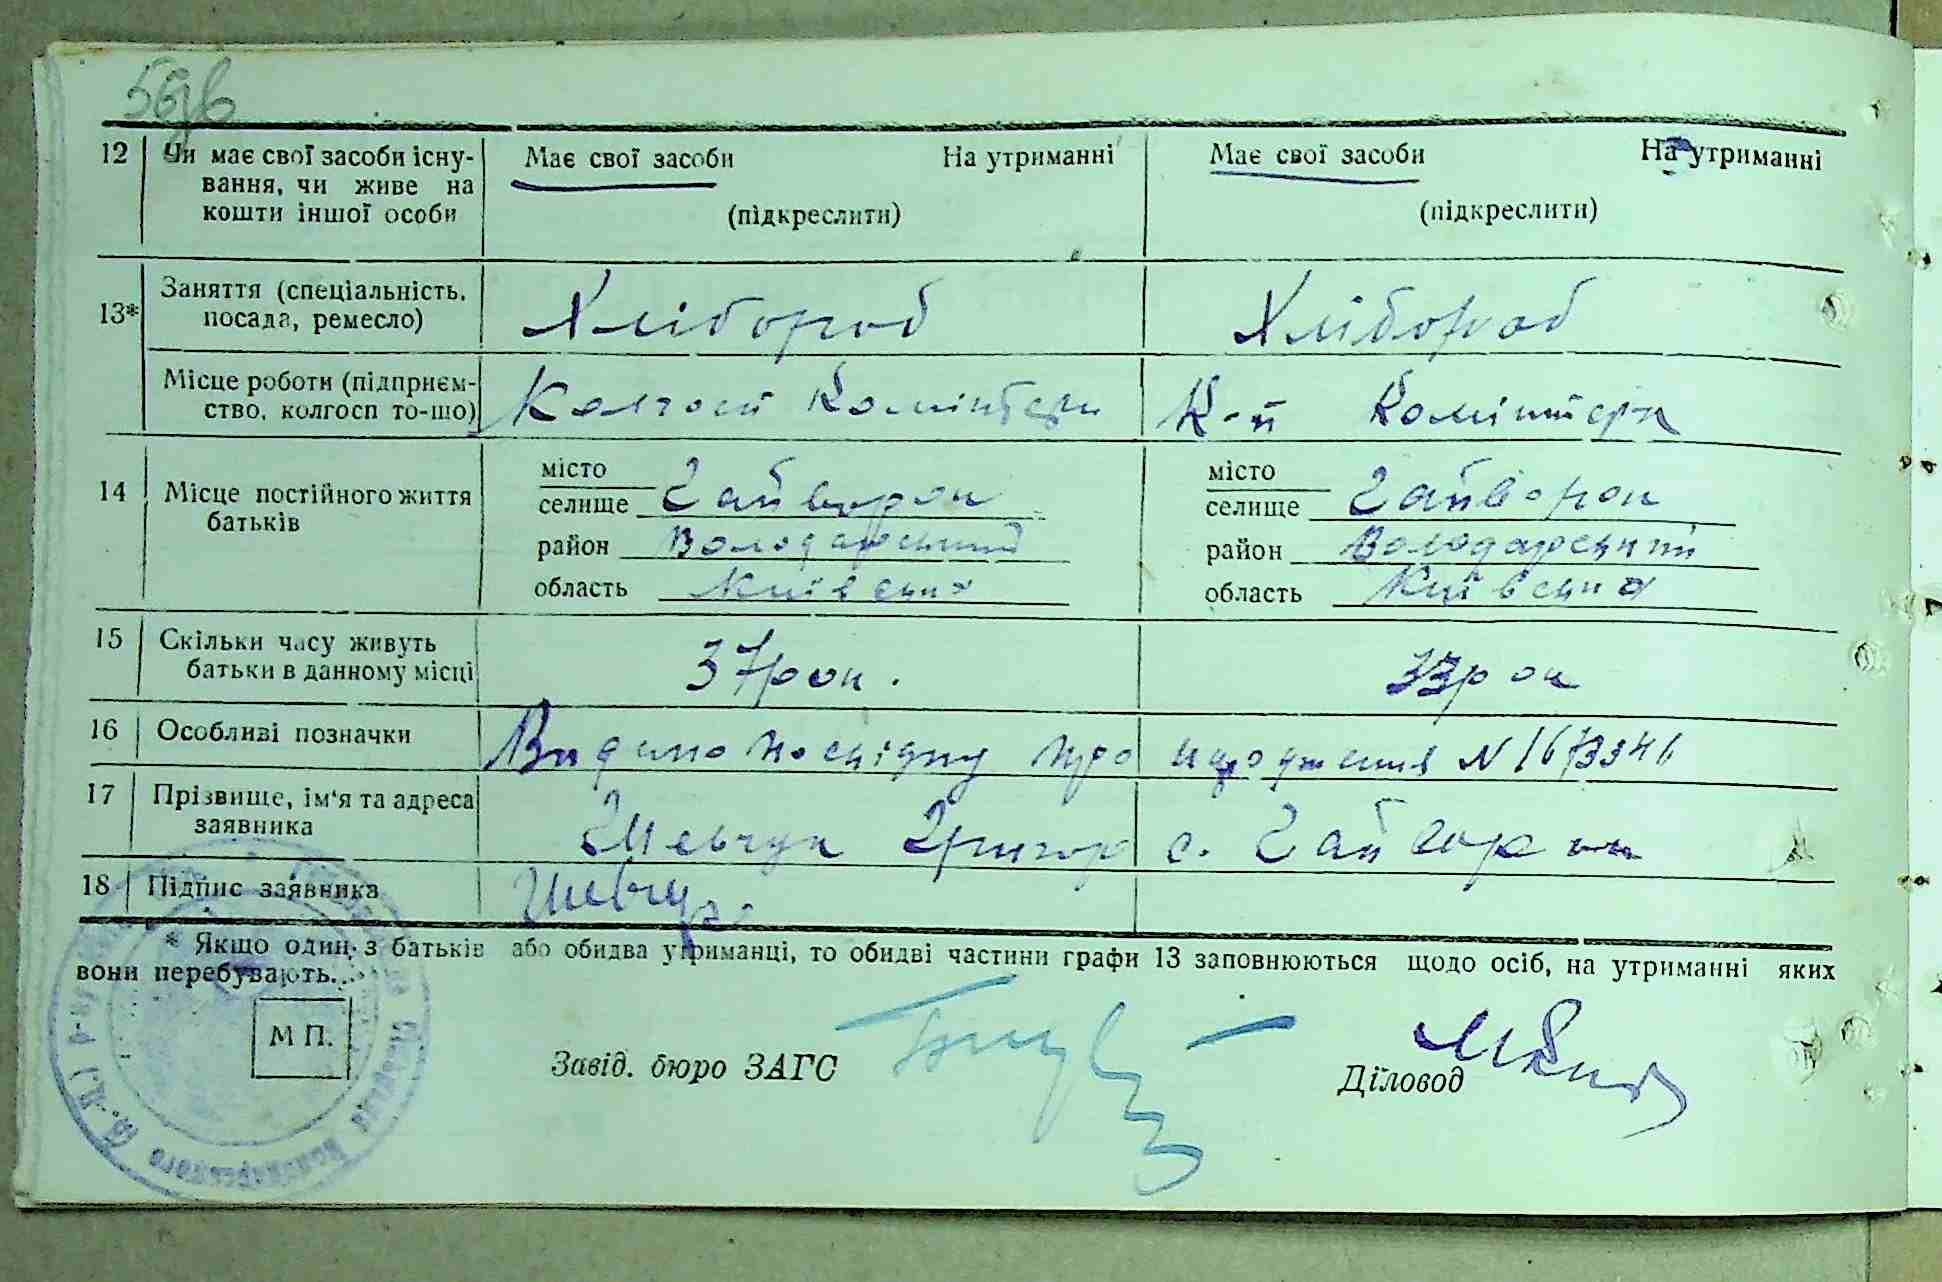 12 Чи має свої засоби існу- Має свої засоби На утриманні Має свої засоби На утриманні
вання, чи живе на
кошти іншої особи (підкреслити) (підкреслити)
13* Заняття (спеціальність, Хлібороб Хлібороб
посада, ремесло)
Місце роботи (підприєм- Колгосп Комінтерн К-п Комінтерн
ство, колгосп то-що)
14 Місце постійного життя місто місто
батьків селище Гайворон селище Гайворон
район Володарський район Володарський
область Київська область Київська
15 Скільки часу живуть 37 рок. 33 рок
батьки в данному місці
16 Особливі позначки Видано посвідку про народження N 1673346
17 Прізвище, ім'я та адреса Шевчук Григор с. Гайворон
заявника
18 Підпис заявника Шевчук
* Якщо один з батьків або обидва утриманці, то обидві частини графи 13 заповнюються щодо осіб, на утриманні яких
вони перебувають.
М П.
Завід. бюро ЗАГС Діловод